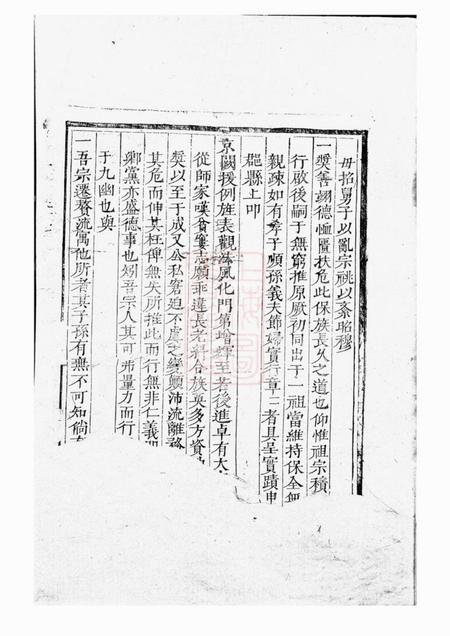 毋招異子以亂宗祧以紊昭穆
一獎善翊德恤匱扶危此保族長久之道也仰惟祖宗積
行啟後嗣于無窮推原厥初同出于一祖當維持保全無
親疎如有孝子順孫義夫節婦實行章章者具呈實蹟申
郡縣上叩
京闕援例旌表觀海風化門第增輝至若後進卓有大
從師家嘆貧寠志願乖違長老科合族英多方資
獎以至于成又公私窘迫不虞之變顛沛流離務
其危而伸其枉俾無失所推此而行無非仁義
鄉黨亦盛德事也矧吾宗人其可弗量力而行
于九幽也與
一吾宗遷贅流寓他所者其子孫有無不可知倘